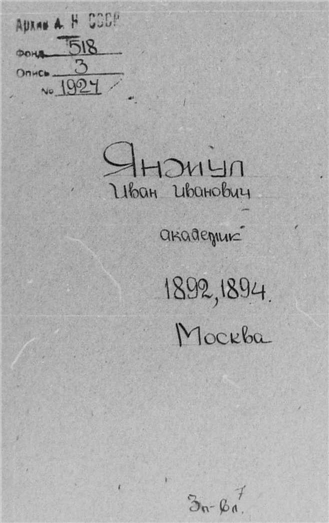 Архив А. Н СССР
Фонд 518
Опись 3
№ 1927
Янжул
Иван Иванович
академик
1892, 1894.
Москва
3п-6л.